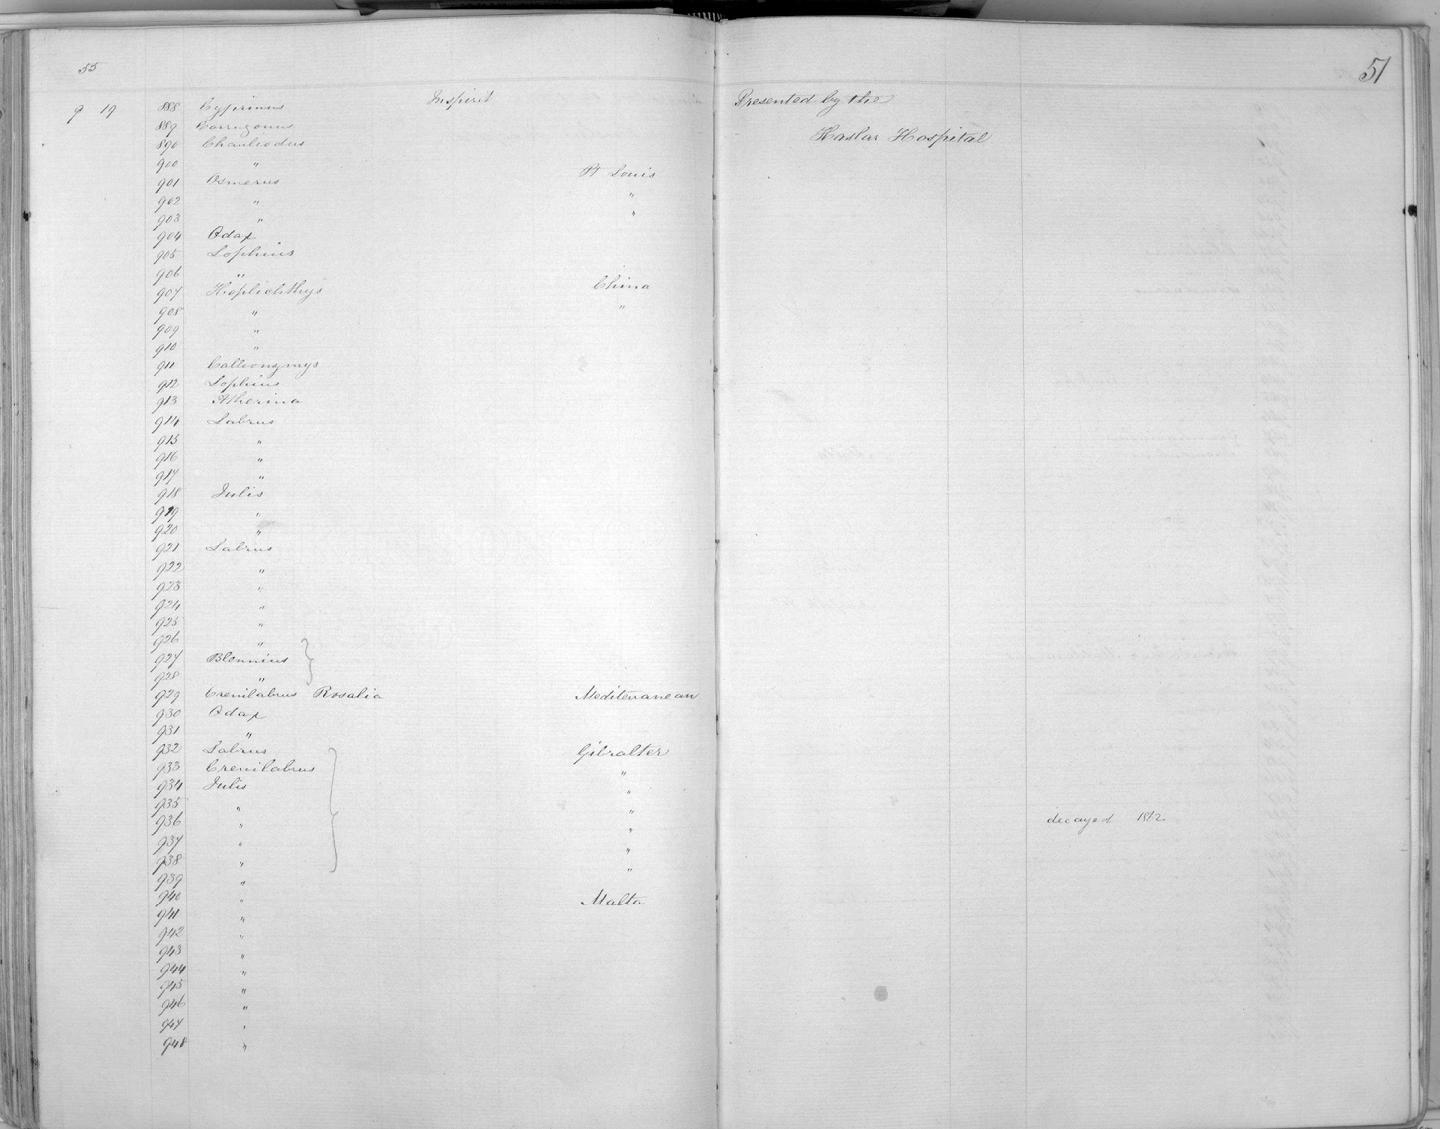 55 51
9 19 888 Cyprinus Inspirit Presented by the
889 Corregonus Haslar Hospital
890 Chauliodus
900 "
901 Osmerus St Louis
902 " "
903 " "
904 Odax
905 Lophius
906 "
907 Hoplichthys China
908 " "
909 "
910 "
911 Callionymys
912 Lophius
913 Atherina
914 Labrus
915 "
916 "
917 "
918 Julis
919 "
920 "
921 Labrus
922 "
923 "
924 "
925 "
926 "
927 Blennius
928 "
929 Crenilabrus Rosalia Mediterranean
930 Odax
931 "
932 Labrus Gibralter
933 Crenilabrus "
934 Julis "
935 " "
936 " " decayed 1872
937 " "
938 " "
939 "
940 " Malta
941 "
942 "
943 "
944 "
945 "
946 "
947 "
948 "